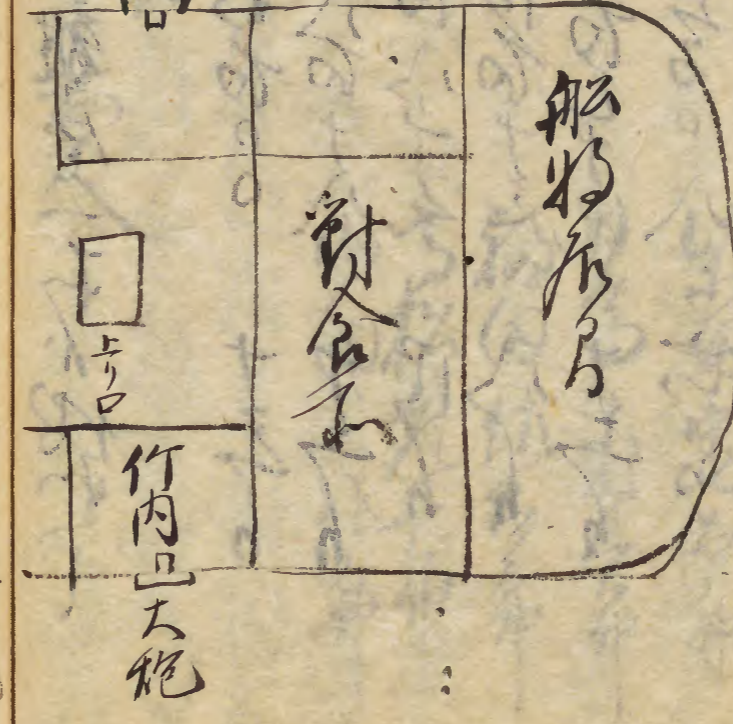 船将居間
對食所
上リ口
竹内
大炮